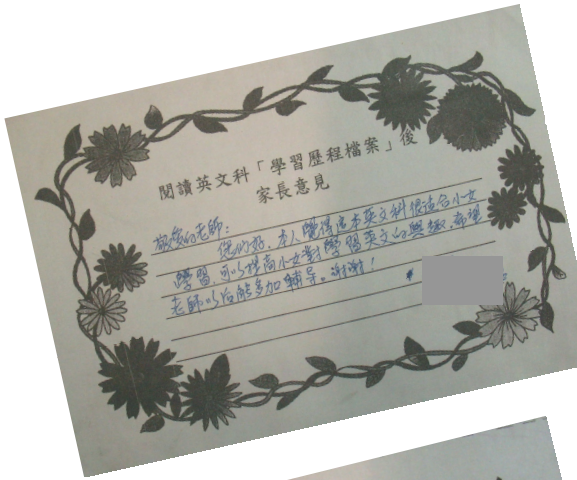 閱讀英文科「學習歷程檔案」後
家長意見
敬爱的老師：
您們好，本人覺得這本英文科很适合小女
學習，可以提高小女對學習英文的興趣，希望
老師以后能多加輔导。謝謝！